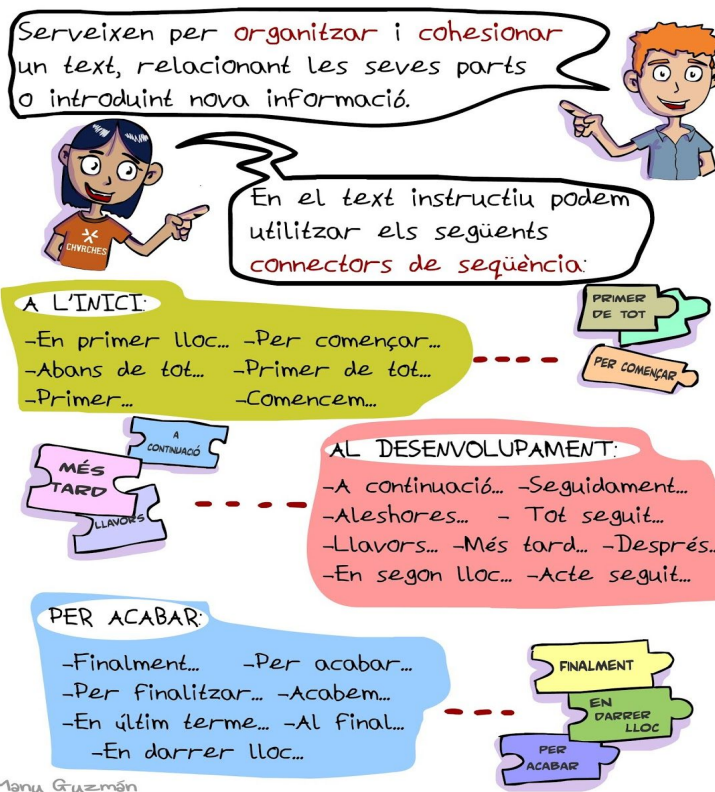 Serveixen per organitzar i cohesionar
un text, relacionant les seves parts
o introduint nova informació.
En el text instructiu podem
utilitzar els següents
connectors de seqüència:
CHVRCHES
A L'INICI:
-En primer lloc... -Per començar...
-Abans de tot... -Primer de tot...
-Primer... -Comencem...
PRIMER
DE TOT
PER COMENÇAR
A
CONTINUACIÓ
MÉS
TARD
LLAVORS
AL DESENVOLUPAMENT:
-A continuació... -Seguidament...
-Aleshores... - Tot seguit...
-Llavors... -Més tard... -Després...
-En segon lloc... -Acte seguit...
PER ACABAR:
-Finalment... -Per acabar...
-Per finalitzar... -Acabem...
-En últim terme... -Al final...
-En darrer lloc...
FINALMENT
EN
DARRER
LLOC
PER
ACABAR
Manu Guzmán